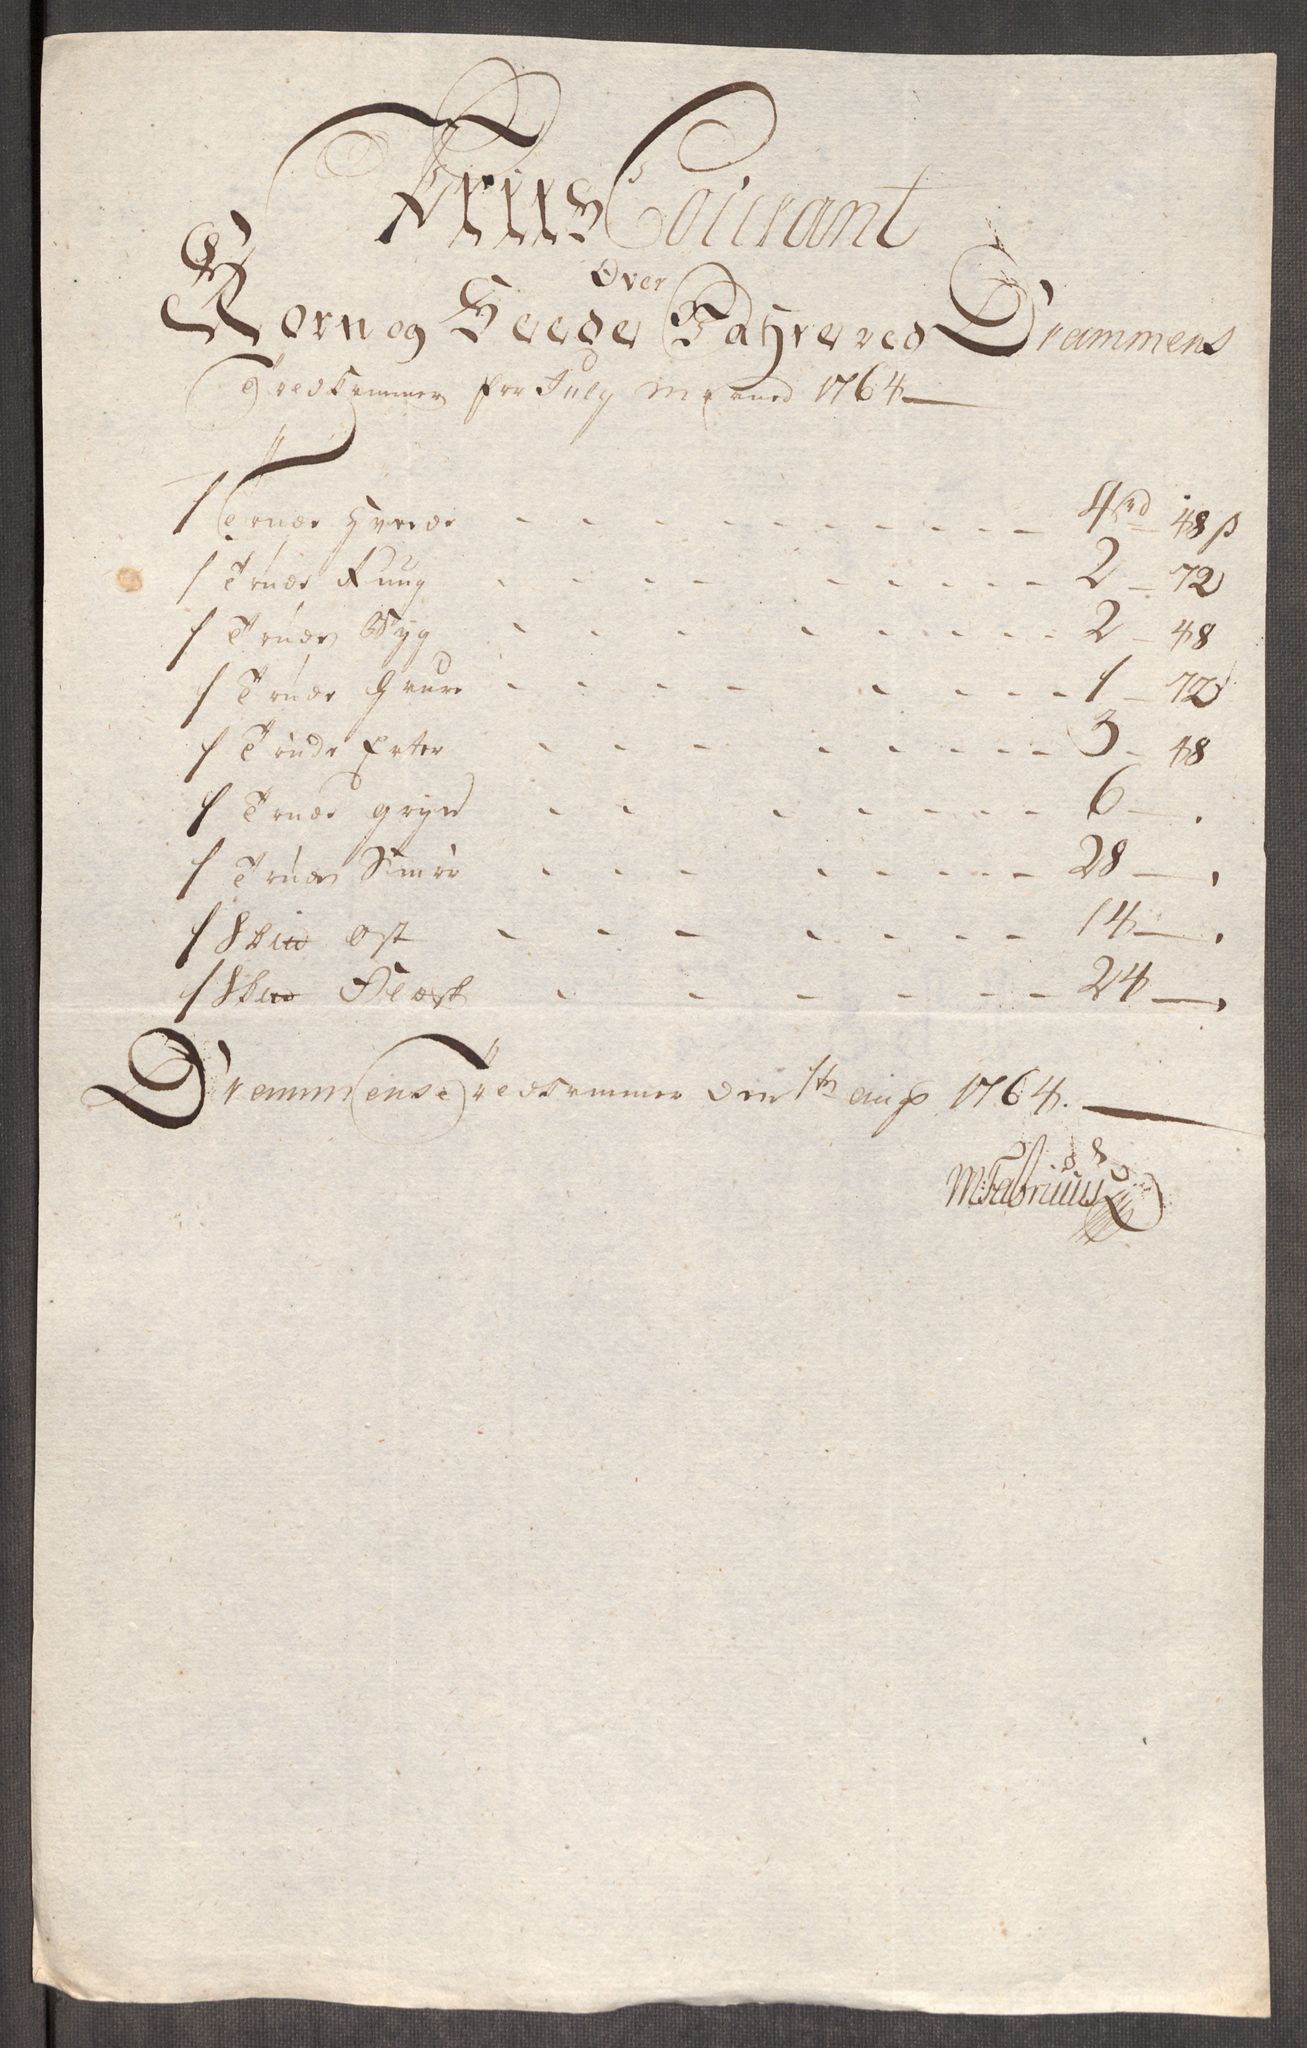 Priis Courant
Over
Korn og Feede Vahre ved Drammens
Tredkammer for July Maaned 1764
1 Tønde Hvede 4 rd 48 ß
1 Tønde Rug 2 - 72
1 Tønde Byg 2 - 48
1 Tønde Havre 1 - 72
1 Tønde Erter 3 - 48
1 Tønde gryn 6 - .
1 Tønde Smør 28 - ,
1 Sk℔ Ost 14 - ,
1 Sk℔ Flesk 24 - ,
Drammens Tredkammer den 1te aug 1764.
M Fabritius